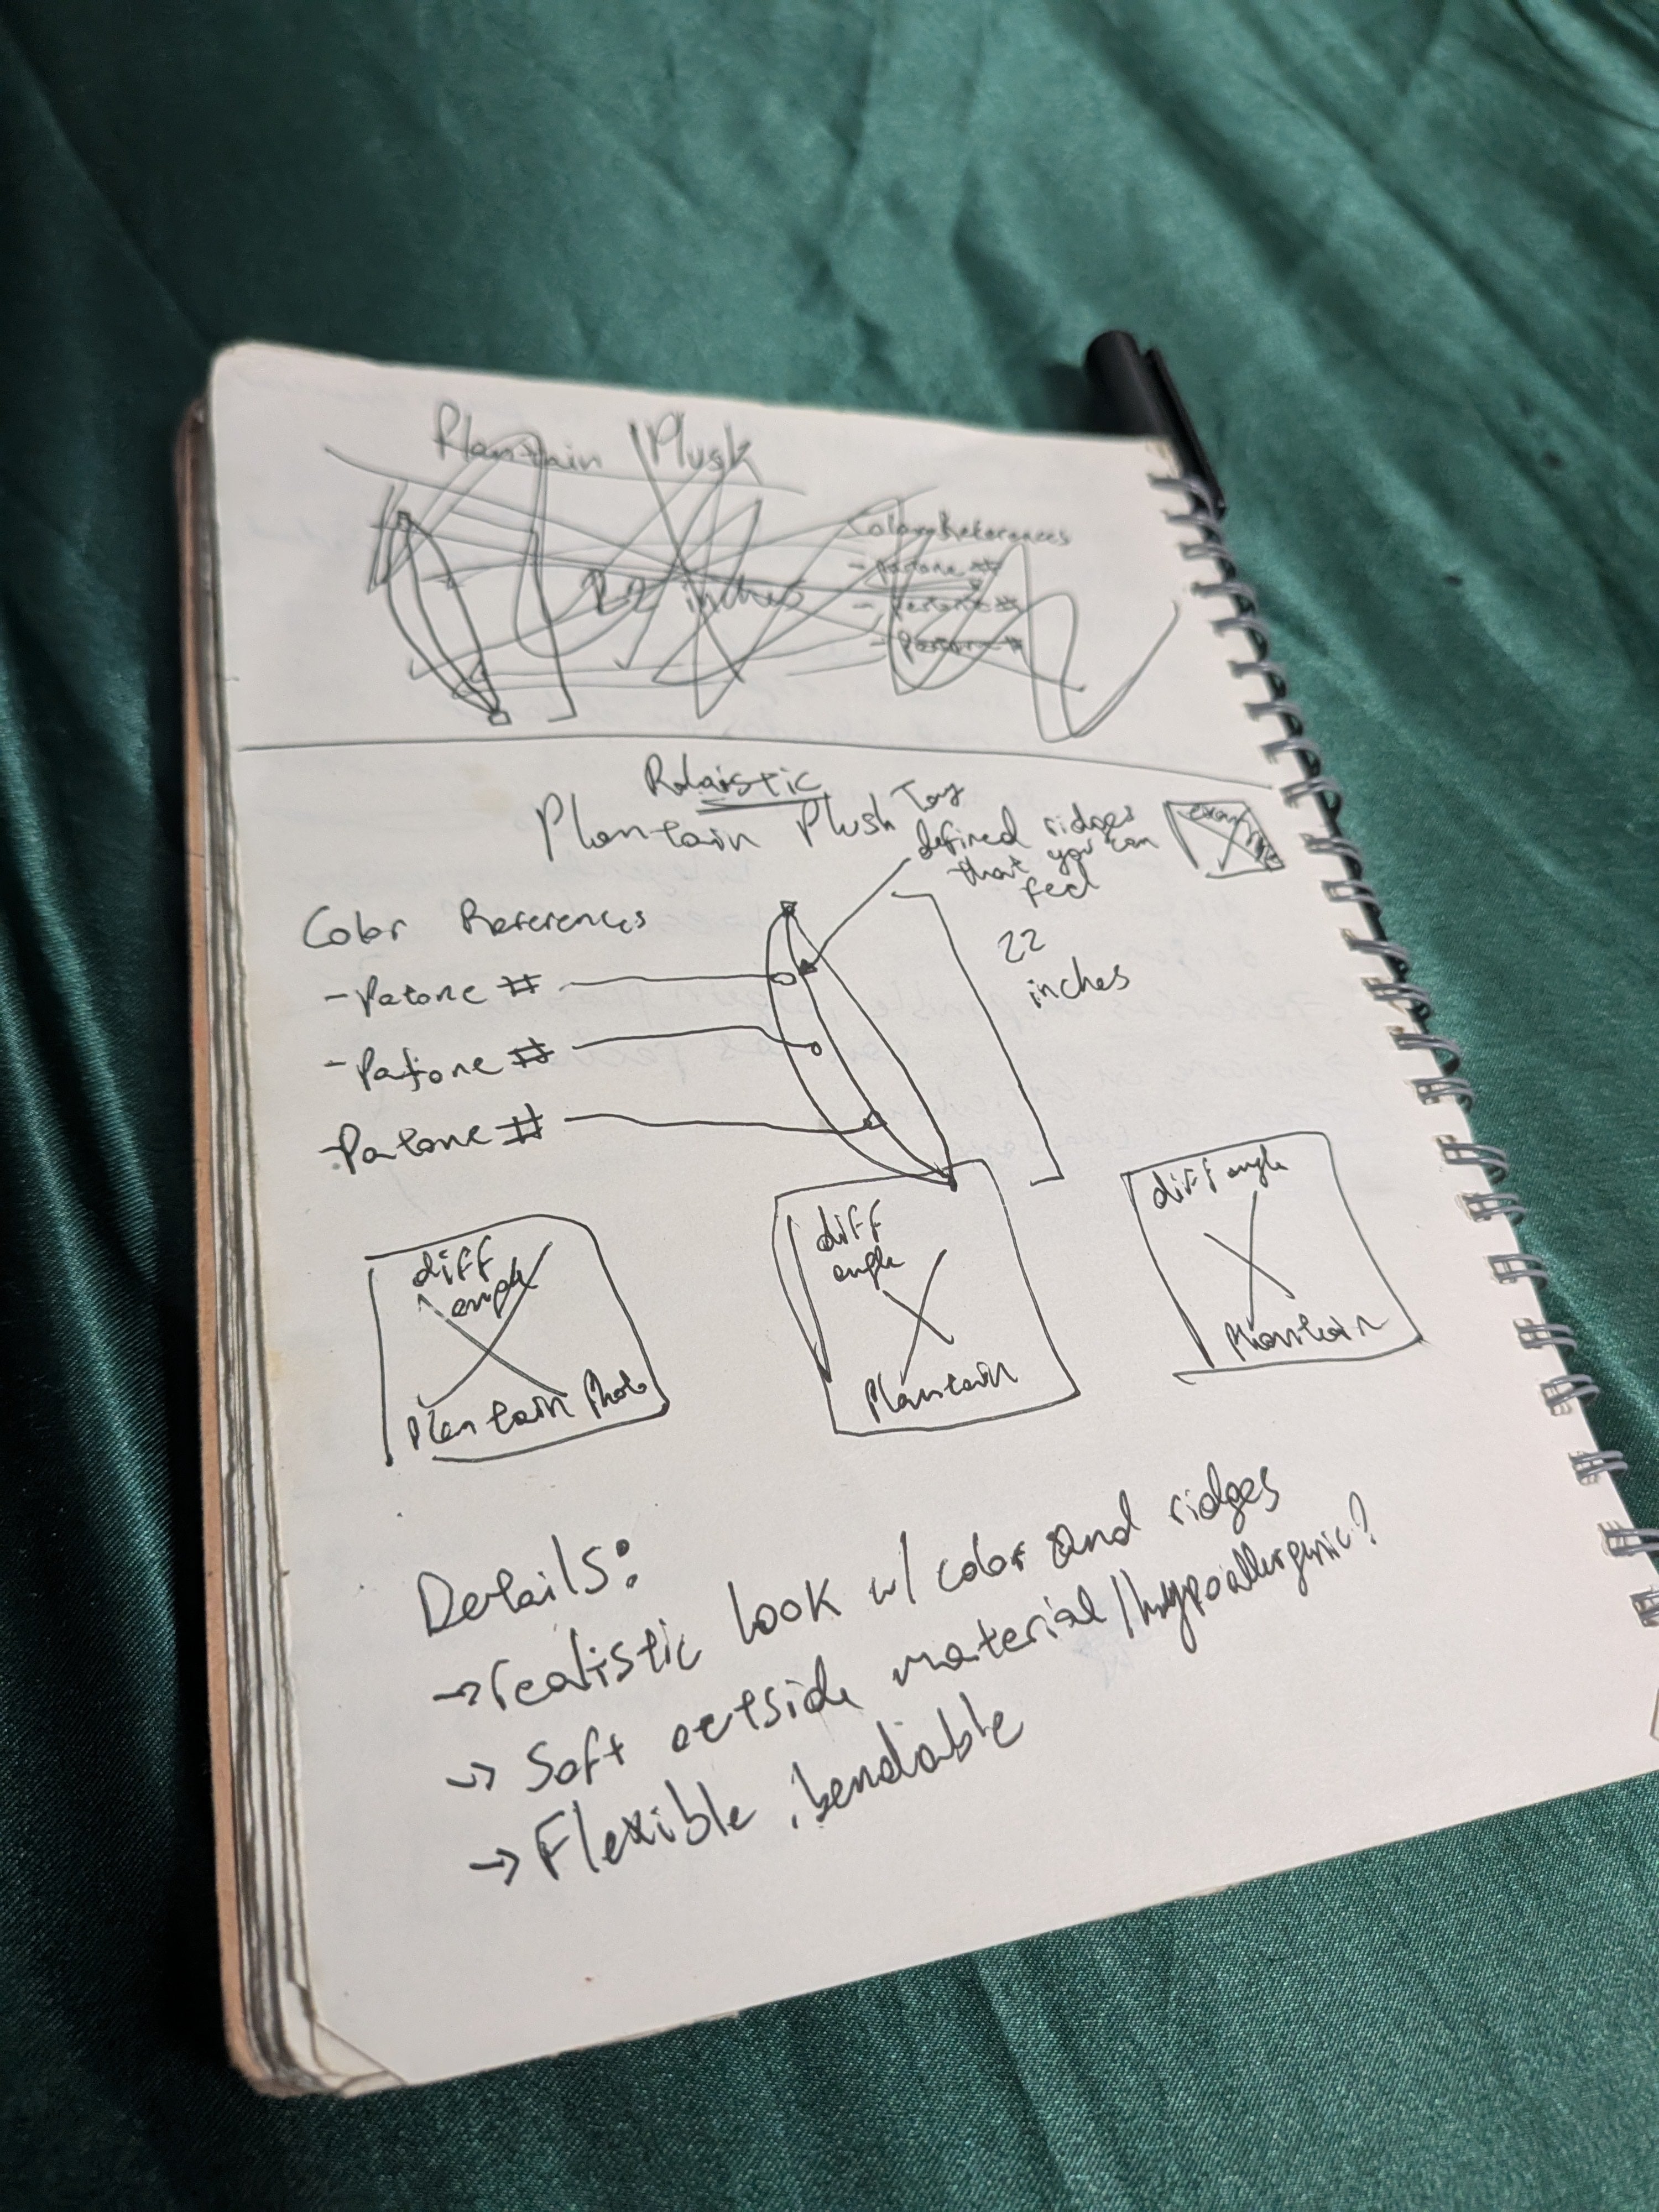 Planthin Plush
Color References
- Pantone #
22 inches
- Pantone #
- Pantone #
Relaistic
Plantain Plush Toy
defined ridges
that you can
feel
Color References
22
inches
- Patone #
- Patione #
- Patone #
diff
angle
Plantain Photo
diff
angle
Plantain
diff angle
Plantain
Details:
→ realistic look w/ color and ridges
→ Soft outside material / hypoallergenic?
→ Flexible, bendable